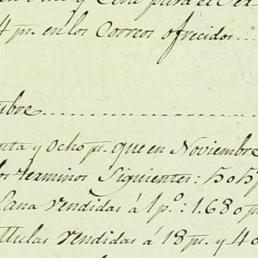 para el
4 p.s en los Correos ofrecidos
bre
nta y ocho p.s que en Noviembre
los terminos siguientes:
Lana vendidas á 1 p.o: 1.680 p
vendidas á 18 p.s y 40